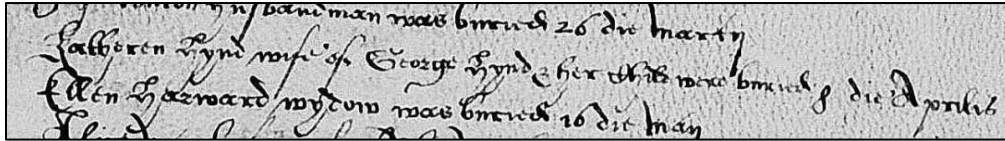 husbandman was buried 26 die martij
Katheren Hynd wife of George Hynd & her child were buried 8 die Aprilis
Ellen Harward wydow was buried 16 die maii